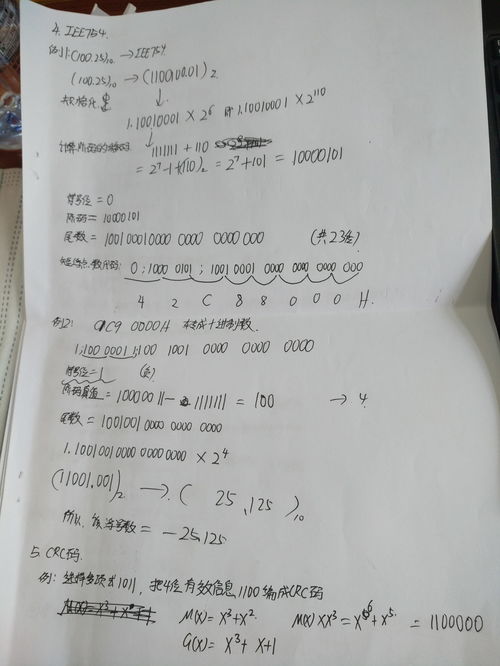 4. IEE754.
例1: (100.25)₁₀ → IEE754
(100.25)₁₀ → (1100100.01)₂
规格化
↓
1.10010001 × 2⁶ 即 1.10010001 × 2¹¹⁰
↓
计算阶码的
1111111 + 110
= 2⁷-1+(110)₂ = 2⁷+101 = 10000101
符号位 = 0
阶码 = 10000101
尾数 = 100100010000 0000 0000 000 (共23位)
短浮点数代码: 0;1000 0101;1001 0001 0000 0000 0000 000
4 2 C 8 8 0 0 0 H.
例2: C1C9 0000H 转成十进制数.
1;1000001 1;100 1001 0000 0000 0000 0000
符号位 = 1 (负)
阶码真值 = 10000011 - 1111111 = 100 → 4
尾数 = 1001001 0000 0000 0000
1.1001001 0000 0000 0000 × 2⁴
(11001.001)₂ → ( 25.125 )₁₀
所以, 该浮点数 = -25.125
5. CRC码.
例: 选择多项式1011, 把4位有效信息1100编成CRC码
M(x) = x³+x² M(x)×x³ = x⁶+x⁵ = 1100000
G(x) = x³+x+1